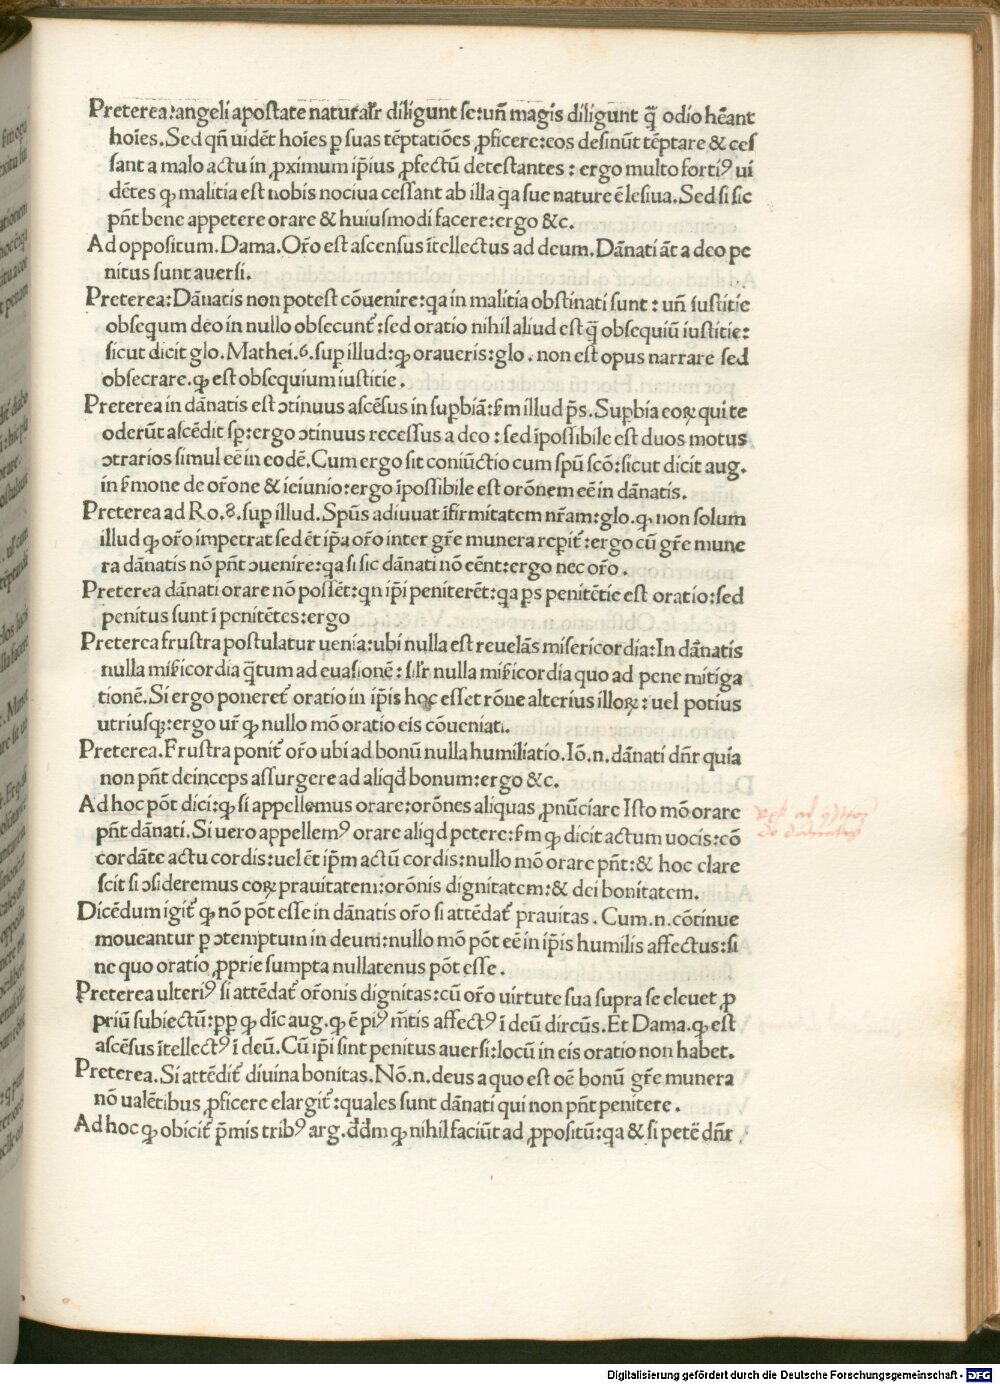 Preterea:angeli apostate naturalr̃ diligunt se:uñ magis diligunt q̃ odio hẽant
hoĩes. Sed qñ uidẽt hoĩes p̱ suas tẽptatiões ꝓficere:eos desinũt tẽptare & ces
sant a malo actu in ꝓximum ip̃ius ꝓfectũ detestantes : ergo multo fortiꝰ ui
dẽtes ꝙ malitia est nobis nociua cessant ab illa q̃a sue nature ẽ lesiua. Sed si sic
pñt bene appetere orare & huiusmodi facere:ergo &c.
Ad oppositum. Dama. Or̃o est ascensus ĩtellectus ad deum. Dãnati ãt a deo pe
nitus sunt auersi.
Preterea: Dãnatis non potest cõuenire:q̃a in malitia obstinati sunt : uñ iustitie
obsequm deo in nullo obsecunt᷑:sed oratio nihil aliud est q̃ obsequiũ iustitie:
sicut dicit glo. Mathei.6.sup̱ illud:ꝙ oraueris:glo. non est opus narrare sed
obsecrare.ꝙ est obsequium iustitie.
Preterea in dãnatis est ↄtinuus ascẽsus in sup̱biã:ẜm illud p̃s. Sup̱bia eoꝝ qui te
oderũt ascẽdit sp̱:ergo ↄtinuus recessus a deo : sed ĩpossibile est duos motus
ↄtrarios simul eẽ in eodẽ. Cum ergo sit coniũctio cum sp̃u scõ:sicut dicit aug.
in ẜmone de or̃one & ieiunio:ergo ĩpossibile est orõnem eẽ in dãnatis.
Preterea ad Ro.8.sup̱ illud. Sp̃us adiuuat ĩfirmitatem nr̃am:glo. ꝙ non solum
illud ꝙ or̃o impetrat sed ẽt ip̃a or̃o inter gr̃e munera rep̱it᷑:ergo cũ gr̃e mune
ra dãnatis nõ pñt ↄuenire:q̃a si sic dãnati nõ eẽnt:ergo nec or̃o.
Preterea dãnati orare nõ possẽt:qn ip̃i peniterẽt:q̃a p̱s penitẽtie est oratio:sed
penitus sunt ĩpenitẽtes:ergo
Preterea frustra postulatur uenia:ubi nulla est reuelãs misericordia: In dãnatis
nulla miẜicordia q̃tum ad euasionẽ : sil̃r nulla miẜicordia quo ad pene mitiga
tionẽ. Si ergo poneret᷑ oratio in ip̃is hoc esset rõne alterius illoꝝ: uel potius
utriusqꝫ:ergo ur̃ ꝙ nullo mõ oratio eis cõueniat.
Preterea. Frustra ponit᷑ or̃o ubi ad bonũ nulla humiliatio. Iõ.n. dãnati dñr quia
non pñt deinceps assurgere ad aliqđ bonum:ergo &c.
Ad hoc põt dici:ꝙ si appellemus orare:orõnes aliquas ꝓnũciare Isto mõ orare
pñt dãnati. Si uero appellemꝰ orare aliqđ petere:ẜm ꝙ dicit actum uocis:cõ
cordãte actu cordis:uel ẽt ip̃m actũ cordis:nullo mõ orare pñt:& hoc clare
scit si ↄsideremus eoꝝ prauitatem:orõnis dignitatem:& dei bonitatem.
Dicẽdum igit᷑ ꝙ nõ põt esse in dãnatis or̃o si attẽdat᷑ prauitas. Cum.n.cõtinue
moueantur p̱ ↄtemptum in deum:nullo mõ põt eẽ in ip̃is humilis affectus:si
ne quo oratio ꝓprie sumpta nullatenus põt esse.
Preterea ulteriꝰ si attẽdat᷑ or̃onis dignitas:cũ or̃o uirtute sua supra se eleuet ꝓ
priũ subiectũ:p̱p̱ ꝙ dic̃ aug. ꝙ ẽ piꝰ m̃tis affectꝰ ĩ deũ dircũs. Et Dama. ꝙ est
ascẽsus ĩtellectꝰ ĩ deũ. Cũ ip̃i sint penitus auersi:locũ in eis oratio non habet.
Preterea. Si attẽdit᷑ diuina bonitas. Nõ.n. deus a quo est oẽ bonũ gr̃e munera
nõ ualẽtibus ꝓficere elargit᷑:quales sunt dãnati qui non pñt penitere.
Ad hoc ꝙ obicit᷑ p̃mis tribꝰ arg. đđm ꝙ nihil faciũt ad ꝓpositũ:q̃a & si petẽ dñr
Digitalisierung gefördert durch die Deutsche Forschungsgemeinschaft - DFG